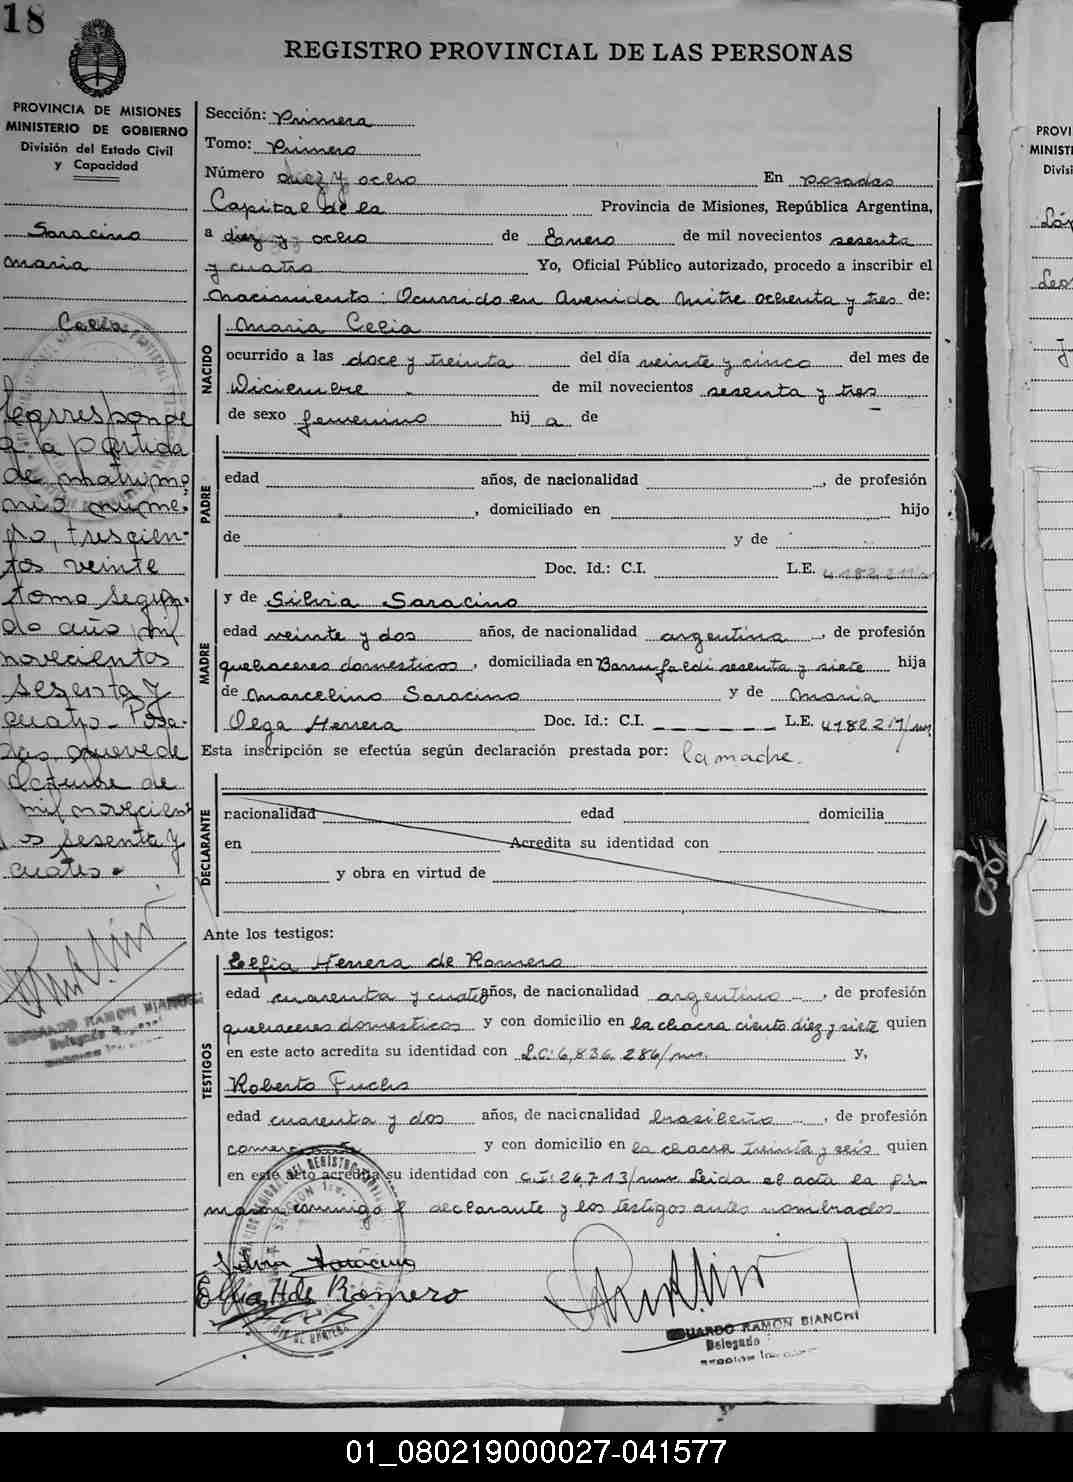 18
REGISTRO PROVINCIAL DE LAS PERSONAS
PROVINCIA DE MISIONES
MINISTERIO DE GOBIERNO
División del Estado Civil
y Capacidad
Saracino
Maria
Celia
Corresponde
a la partida
de matrimo
nio nume-
ro, trescien-
tos veinte
tomo segun-
do año mil
novecientos
sesenta y
cuatro - Posa-
das, nueve de
Octubre de
mil novecien
os sesenta y
cuatro.
EDUARDO RAMON BIANCHI
Delegado
Sección: Primera
Tomo: Primero
Número diez y ocho En posadas
Capital de la Provincia de Misiones, República Argentina,
a diez y ocho de Enero de mil novecientos sesenta
y cuatro Yo, Oficial Público autorizado, procedo a inscribir el
nacimiento: Ocurrido en Avenida Mitre ochenta y tres de:
NACIDO
Maria Celia
ocurrido a las doce y treinta del día veinte y cinco del mes de
Diciembre de mil novecientos sesenta y tres
de sexo femenino hij a de
PADRE
edad años, de nacionalidad , de profesión
, domiciliado en hijo
de y de
Doc. Id.: C.I. L.E.
MADRE
y de Silvia Saracino
edad veinte y dos años, de nacionalidad argentina , de profesión
quehaceres domesticos , domiciliada en Barrufaldi sesenta y siete hija
de Marcelino Saracino y de Maria
Olga Herrera Doc. Id.: C.I. - - - - - - L.E. 4182217/
Esta inscripción se efectúa según declaración prestada por: la madre.
DECLARANTE
nacionalidad edad domicilia
en Acredita su identidad con
y obra en virtud de
Ante los testigos:
TESTIGOS
Elfia Herrera de Romero
edad cuarenta y cuatro años, de nacionalidad argentino , de profesión
quehaceres domesticos y con domicilio en la chacra ciento diez y siete quien
en este acto acredita su identidad con L.C: 6,836,286/ y,
Roberto Fuchs
edad cuarenta y dos años, de nacionalidad brasileño , de profesión
comerciante y con domicilio en la chacra treinta y seis quien
en este acto acredita su identidad con C.I: 26,713/ Leida el acta la fir-
maron conmigo el declarante y los testigos antes nombrados
Silvia Saracino
Elfia H de Romero
EDUARDO RAMON BIANCHI
Delegado
PROVI
MINIST
Divis
01_080219000027-041577